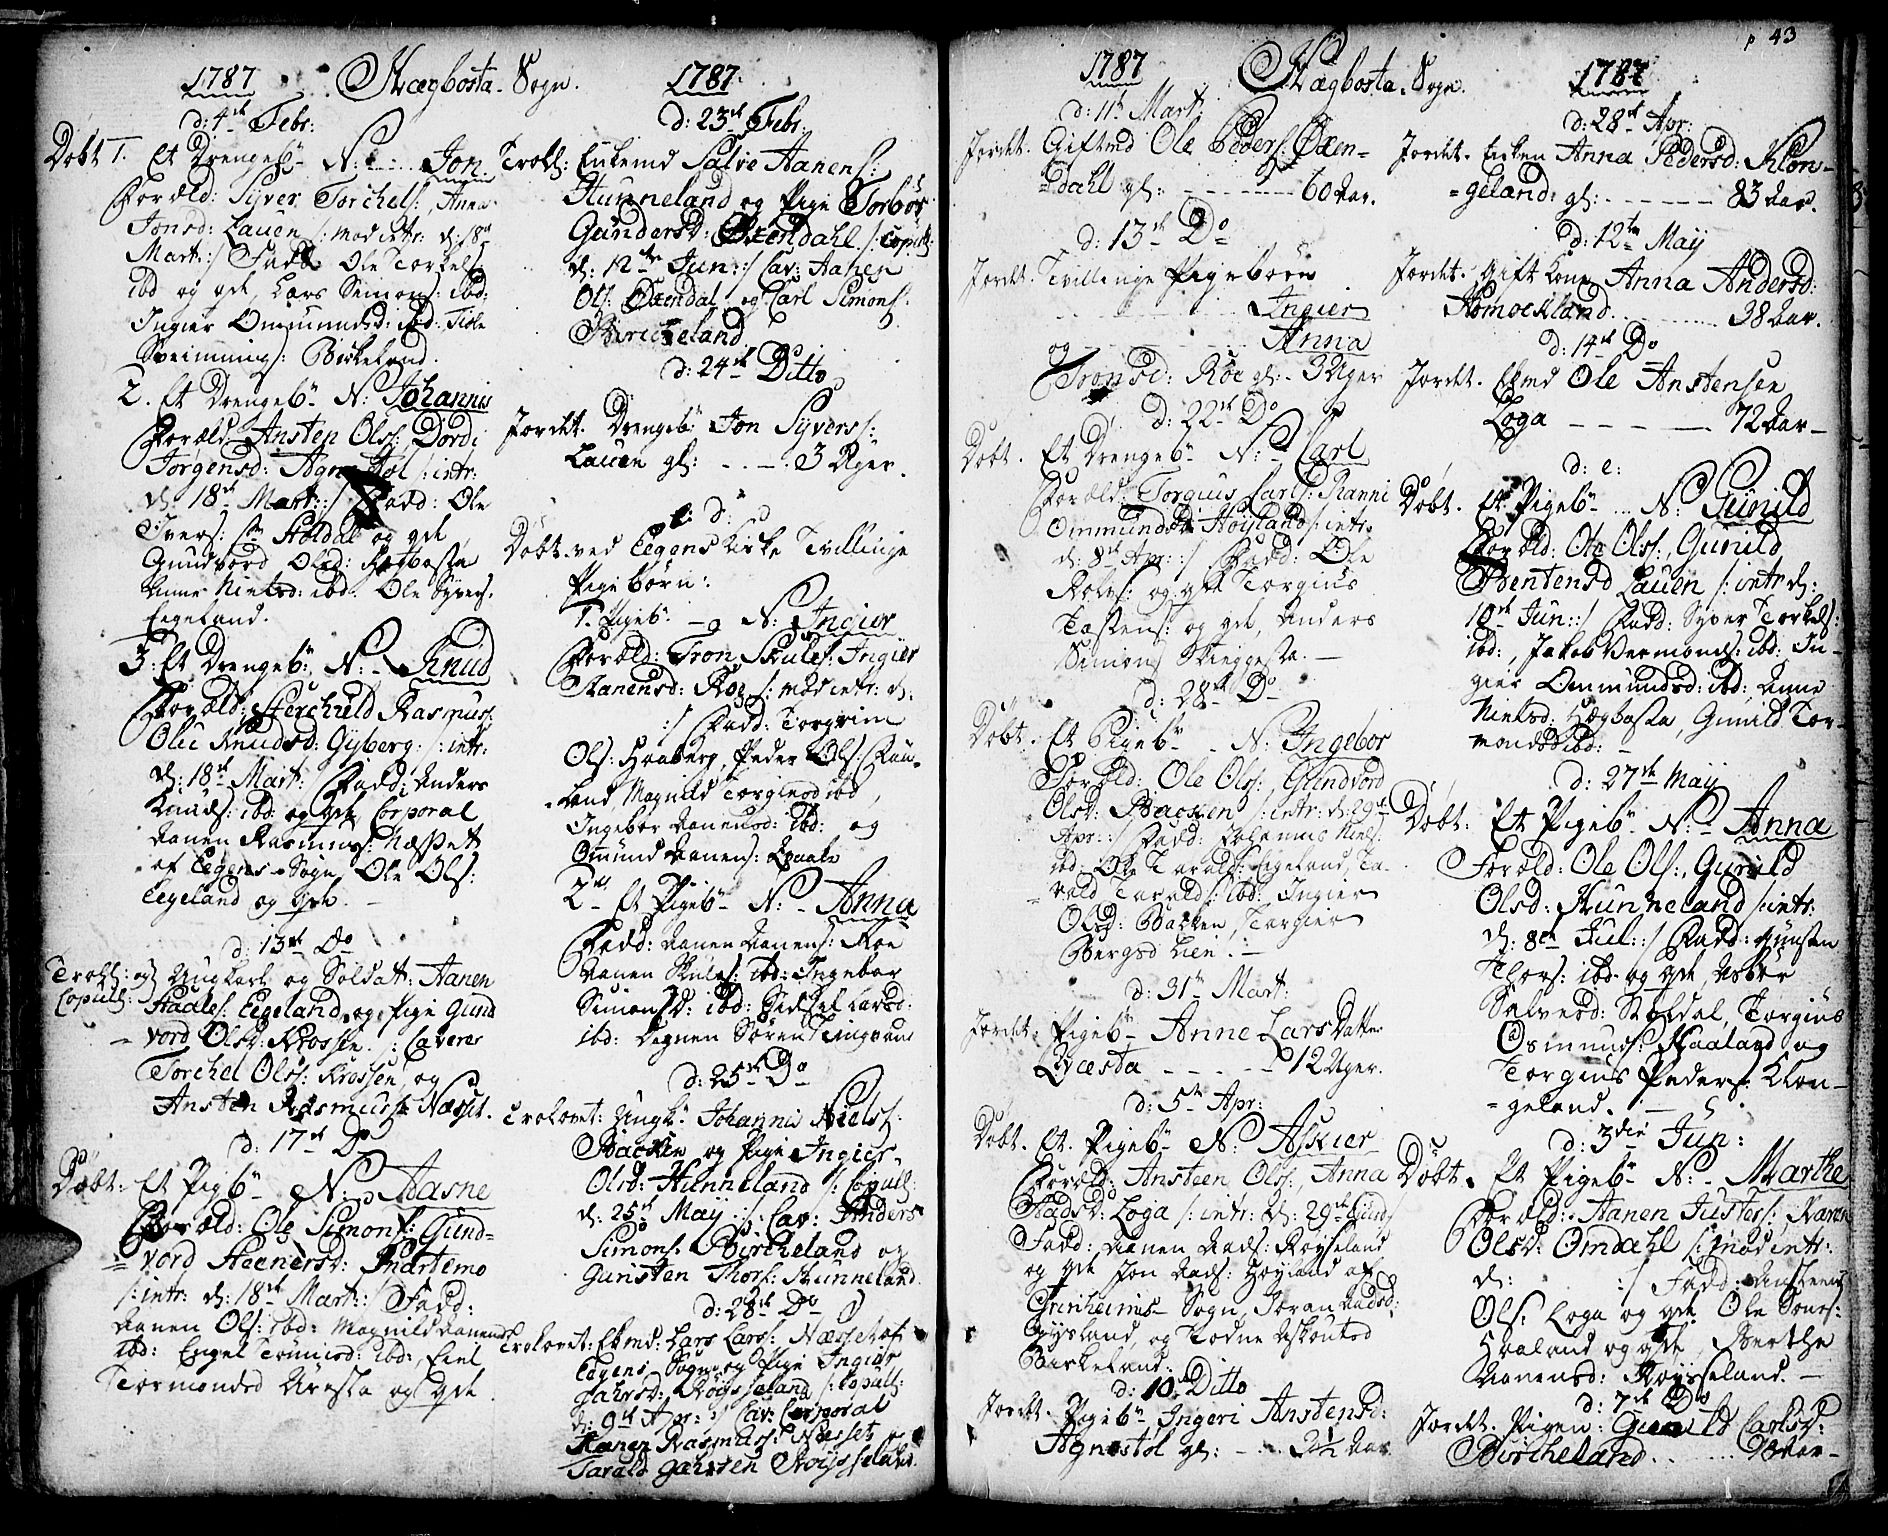 1787 Hægbosta Sogn. 1787
d: 4de Febr:
Døbt 1. Et Drengeb: N: Jon.
Foræld: Syver Torchels:, Anna
Jonsd: Lauen /: mod intr: d: 18de
Mart: :/ Fadd: Ole Torkels:
ibd og gde, Lars Simons: ibd:
Ingier Ommundsd: ibd:
Birkeland.
2. Et Drengeb: N: Johannis
Foræld: Ansten Ols: Dordi
Jørgensd: Agnestøl /: intr:
d: 18de Mart: :/ Fadd: Ole
Ivers: Stoldal og gde,
Gundvord Olsd: Hægbosta
Anne Nielsd: ibd. Ole Syvers:
Eegeland.
3. Et Drengeb: N: Knud
Foræld: Rasmus:
Knudsd: Gyberg. /: intr:
d: 18de Mart: Fadd: Anders
Knuds: ibd: og gde, Corporal
Aanen Rasmus: Næsset
af Eegens Sogn, Ole Ols:
Eegeland og gde.
d: 13de Do
Trol: og Ungkarl og Soldat: Aanen
Copul: Haales: Eegeland og Pige Gund
vord Olsd: Krossen. : Caverer
Torchel Ols: Krossen, og
Ansten Rasmus: Næsset.
d: 17de Do
Døbt: Et Pigb: N: Aasne
Foræld: Ole Simons: Gund=
=vord Steenersd: Snartemo
/: intr: d: 18de Mart: :/ Fadd:
Aanen Ols: ibd: Magnild Aanensd:
ibd: Engel ibd:,
Tormondsd og gde.
d: 23de Febr.
Trol: Enkemd Salve Aanens:
Hunneland og Pige Torbør
Gundersd: Øxendahl /: Copul:
d: 12te Jun: :/ Cav: Aanen
Ols: Øxendal og Carl Simons:
Bircheland
d: 24de Ditto
Jordet. Drengeb: Jon Syvers:
Lauen gl: - - - 3 Uger.
d:
Døbt ved Eegens Kirke Tvillinge
Pigebørn:
1. Pigeb: - N: Ingier
Foræld: Tron Skules: Ingier
Aanensd: Roe /: mod intr: d:
:/ Fadd: Torgrim
Ols: Haaberg, Peder Ols:
land, Magnild Torgiersd ibd,
Ingebor Aanensd: ibd: og
Omund Aanens:
2. Et Pigeb: N: - Anna
Fadd: Aanen Aanens: Roe
Aanen Skules: ibd: Ingebor
Simonsd: ibd: Sidsel Larsd:
ibd: Degnen Søren Tingvaun
d: 25de Do
Trolovet: Ungk: Johannis Niels:
Backen og Pige Ingier
Olsd: Hunneland /: Copul:
d: 25de May :/ Cav: Anders
Simons: Bircheland og
Gunsten Thors: Hunneland
d: 28de Do
Trolovet: Ekmd: Lars Lars: Næsset af
Eegens Sogn og Pige Ingier
Jahrsd: Røysseland /: Copul:
d: 9de Apr: :/ Cav: Corporal
Aanen Rasmus: Næsset og
Tarald Jahrsen Røysseland
p 43
1787 Hægbosta Sogn. 1787
d: 11te Mart:
Jordet. Giftmd Ole Peders: Øxen=
=dahl gl: - - - 60 Aar.
d: 13de Do
Jordet. Tvillinge Pigebørn
Ingier
og - - - Anna
Tronsd: Roe gl: - 3 Uger
d: 22de Do
Døbt. Et Drengeb: N: Carl
Foræld: Torgius Carls: Ranni
Ommundsd: Høyland /: intr:
d: 8de Apr: :/ Fadd: Ole
og gde Torgius
Tostens: og gde, Anders
Simons Skeggesta.
d: 28de Do
Døbt. Et Pigeb: - N: Ingebor
Foræld: Ole Ols:, Gundvord
Olsd: Backen /: intr: d: 29de
Apr: :/ Fadd: Johannis Niels:
ibd: Ole Taralds: Eigeland, Ta=
=rald Taralds: ibd: Ingier
Olsd: Backen, Torgier
Bergsd Lien.
d: 31te Mart:
Jordet: Pigeb: Anne Lars Datter
Lyesta - - - 12 Uger.
d: 5te Apr:
Døbt. Et Pigeb: N: Assier
Foræld: Ansteen Ols:, Anna
Aadsd: Loga /: intr: d: 29de
Fadd: Aanen Aads: Røyseland
og gde Jon Aads: Høyland af
Grinheims Sogn, Joran Aadsd:
Gysland, og Todne Asloutsd
Birkeland.
d: 10de Ditto
Jordet. Pigeb: Ingeri Anstensd:
Agnestøl gl: - - 2½ Aar
d: 28de Apr:
Jordet. Enken Anna Pedersd: Klon=
=geland: gl: - - - 83 Aar.
d: 12te May
Jordet. Gift Kone Anna Andersd:
Homochland - - - 38 Aar.
d: 14de Do
Jordet. Ekmd Ole Anstensen
Loga - - - 72 Aar
d: e:
Døbt. Et Pigeb: - N: Gunild
Foræld: Ole Ols:, Gunild
Bentensd Lauen /: intr d:
10de Jun: :/ Fadd: Syver Torkels:
ibd:, Jakob Vermonds: ibd: In=
gier Ommundsd: ibd: Anne
Nielsd: Hægbosta, Gunild Tor=
mondsd ibd:
d: 27de May
Døbt: Et Pigeb: N: - Anna
Foræld: Ole Ols:, Gunild
Olsd: Hunneland /: intr:
d: 8de Jul: :/ Fadd: Gunsten
Thors: ibd: og gde, Asbør
Salvesd: Stoldal, Torgius
Osmunds: Haaland og
Torgius Peders: Klon=
=geland.
d: 3die Jun:
Døbt. Et Pigeb: N: - Marthe
Foræld: Aanen Justes: Karen
Olsd: Omdahl /: mod intr:
d: :/ Fadd: Ansteen
Ols: Loga og gde Ole Sones:
Haaland og gde, Berthe
Aanensd: Røysseland.
d: 7de Do
Jordet. Pigen: Gunild Carlsd:
Bircheland - - - Aar